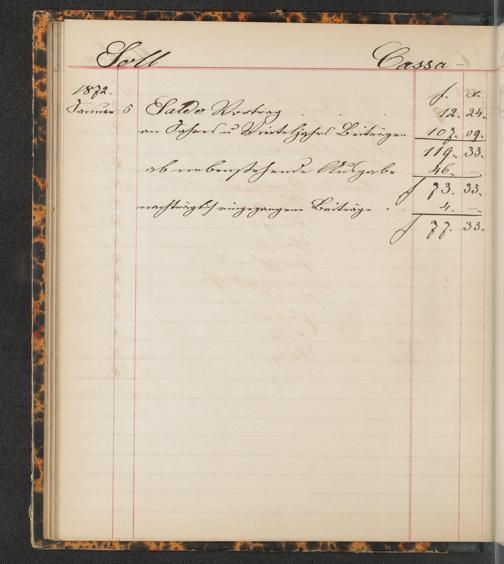 Soll Cassa
1872. f. x.
Januar 5 Saldo Vortrag 12. 24.
an Jahres u Vierteljahres Beiträgen 107. 09.
119. 33.
ab nebenstehende Ausgabe 46. —
f 73. 33.
nachträglich eingegangene Beiträge 4. —
f 77. 33.